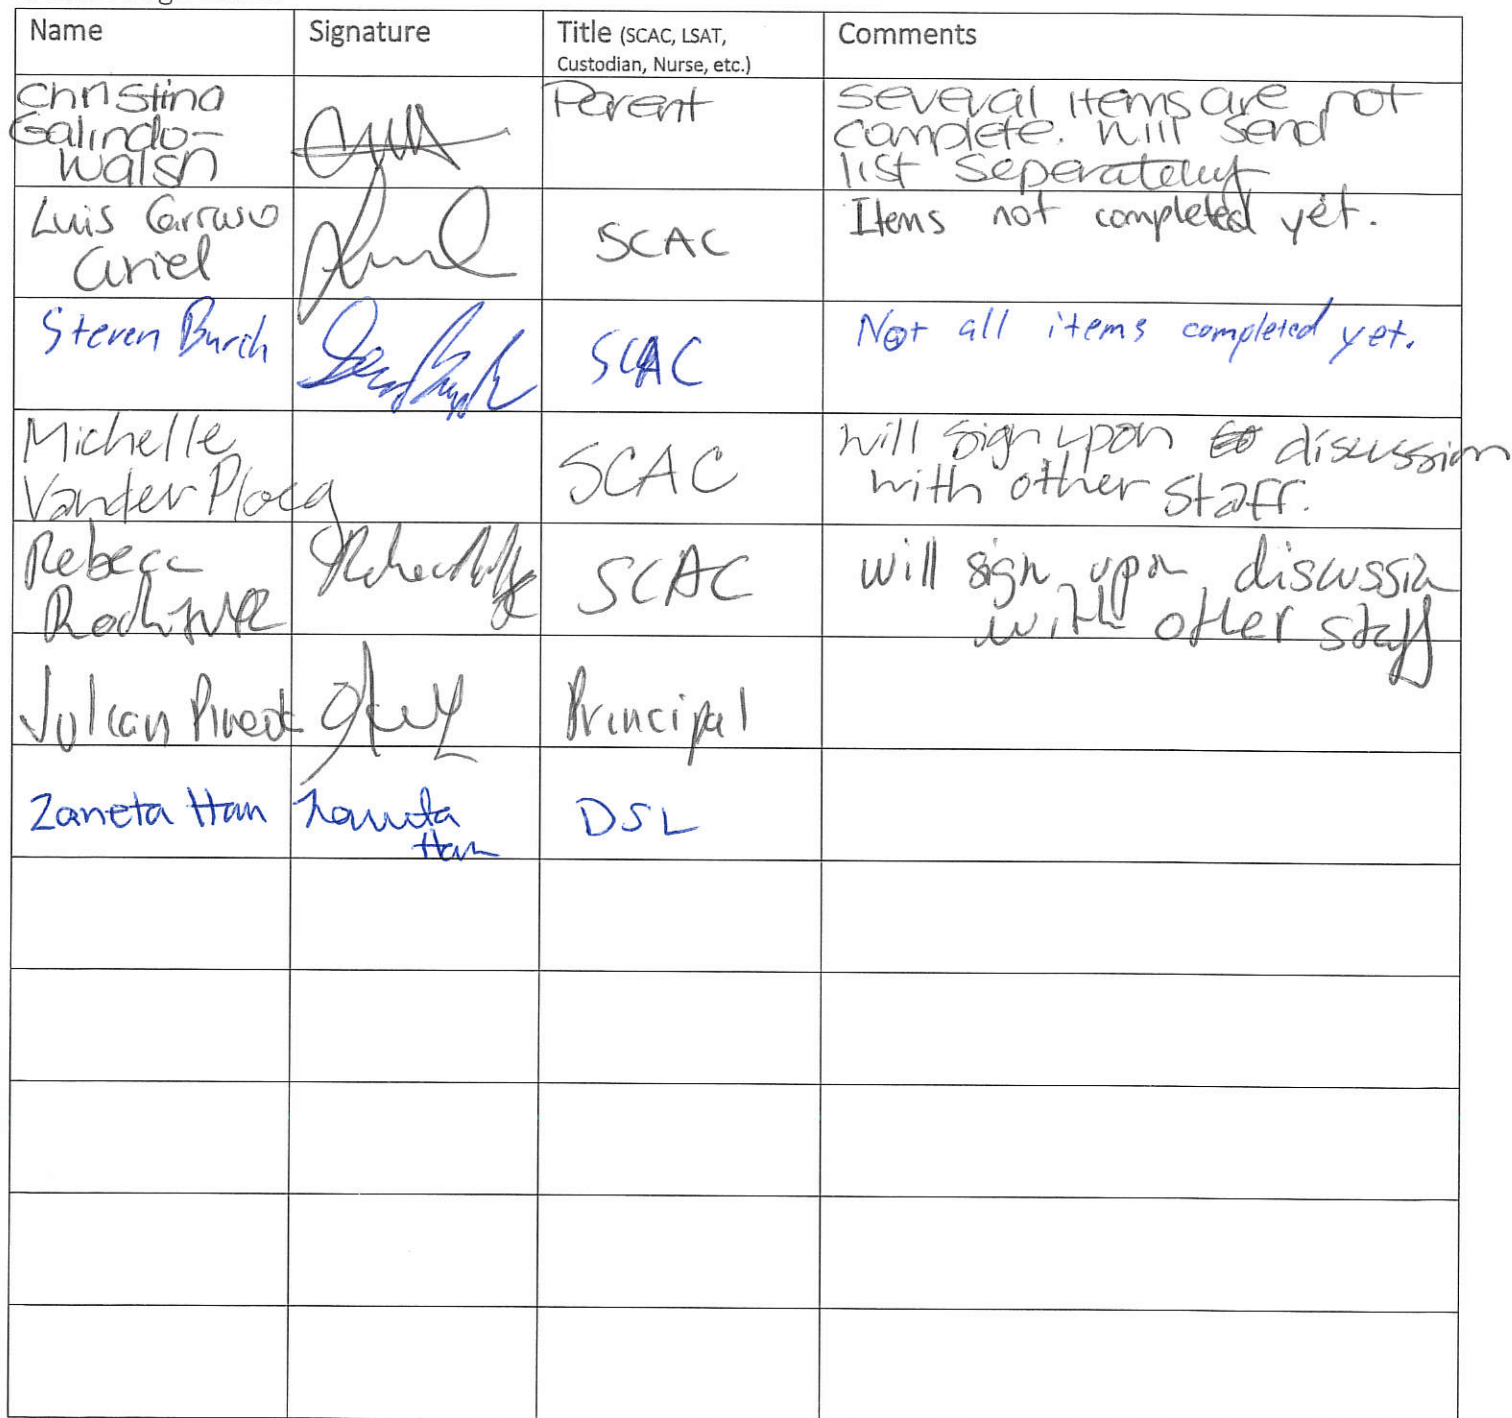 Name Signature Title (SCAC, LSAT, Custodian, Nurse, etc.) Comments
Christina Galindo-Walsh Parent Several items are not
complete. Will send
list seperately
Luis Carrasco Curiel SCAC Items not completed yet.
Steven Burch SCAC Not all items completed yet.
Michelle Vander Ploeg SCAC will sign upon discussion
with other staff.
Rebecc SCAC will sign upon discussion
with other staff
Principal
Zaneta Han Zaneta Han DSL